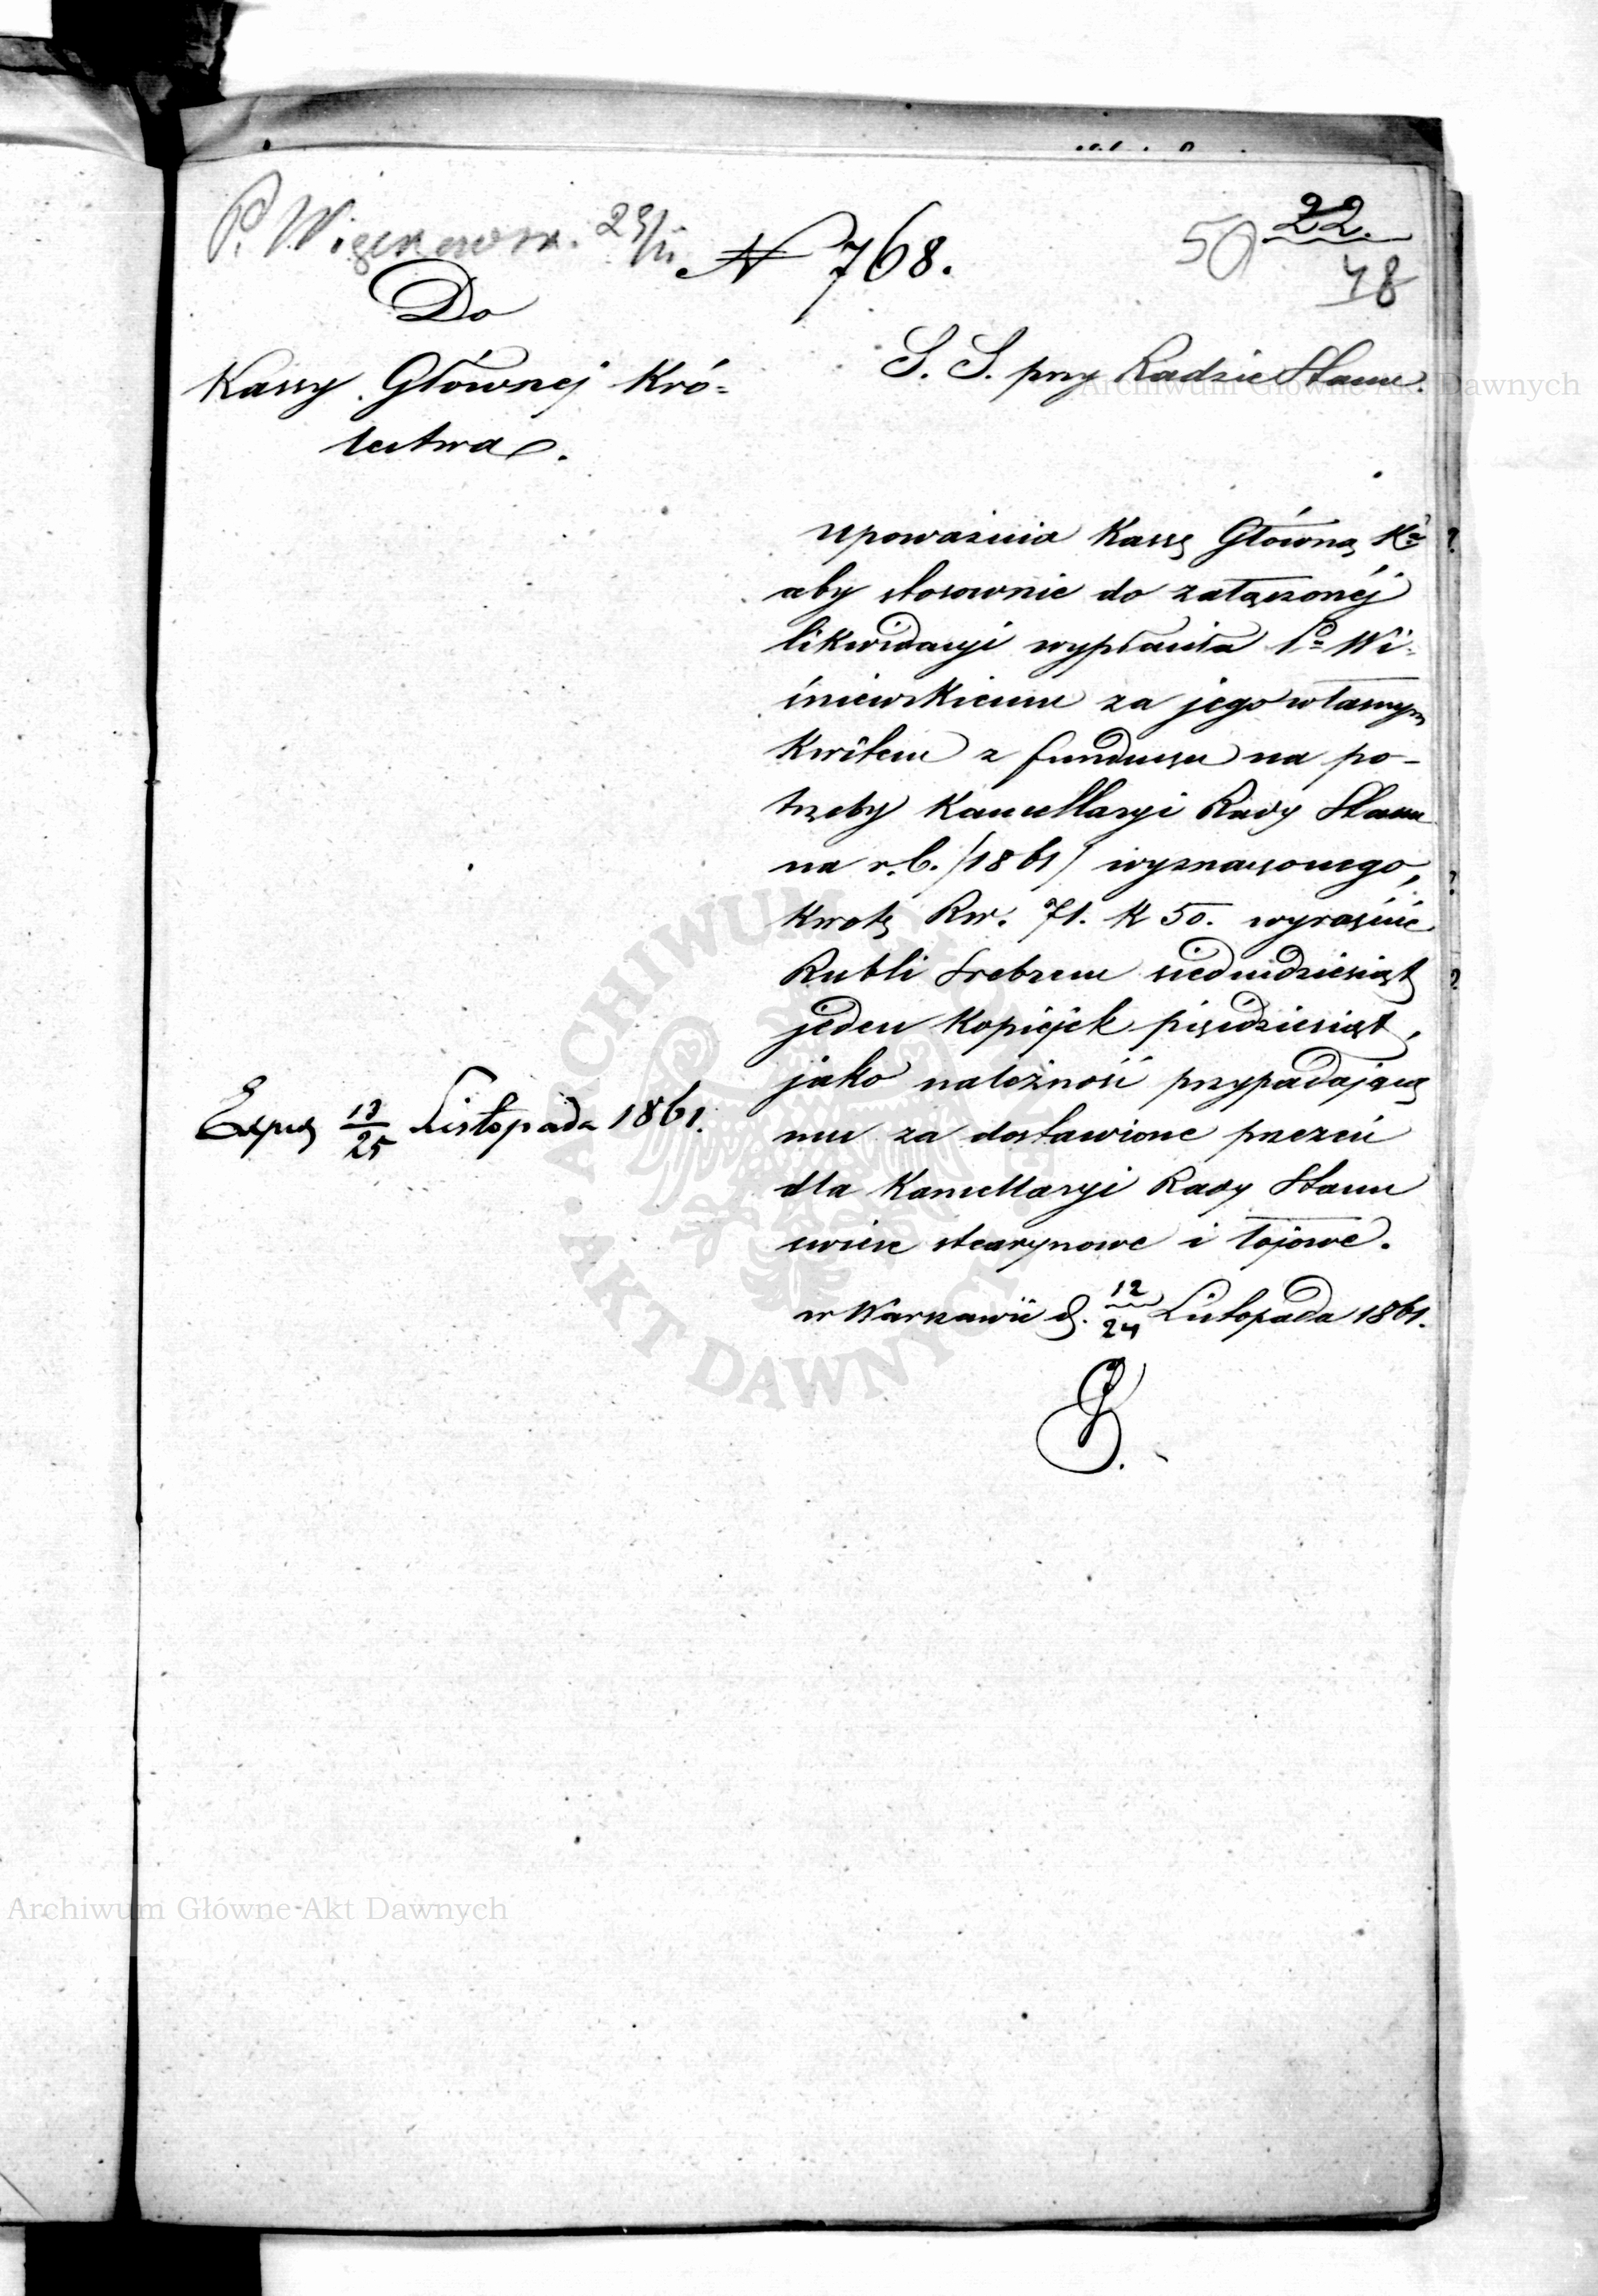 P. Więckowsk. 25/11.
N 768.
50 22.
48
Do
Kassy Głównej Kró-
lestwa.
S. S. przy Radzie Stanu.
upoważnia Kassę Główną Kr.
aby stosownie do załączonéj
likwidacyi wypłaciła Pu Wi-
śniewskiemu za jego własnym
Kwitem z funduszu na po-
trzeby Kancellaryi Rady Stanu
na r.b. /1861/ wyznaczonego,
Kwotę Rsr. 71. K 50. wyraźnie
Rubli Srebrem siedmdziesiąt
jeden Kopiejek pięćdziesiąt,
jako należność przypadającą
mu za dostawione przezeń
dla Kancellaryi Rady Stanu
świece stearynowe i łojowe.
w Warszawie d. 12/24 Listopada 1861.
Exped 13/25 Listopada 1861.
Archiwum Główne Akt Dawnych
Archiwum Główne Akt Dawnych
ARCHIWUM GŁÓWNE
AKT DAWNYCH